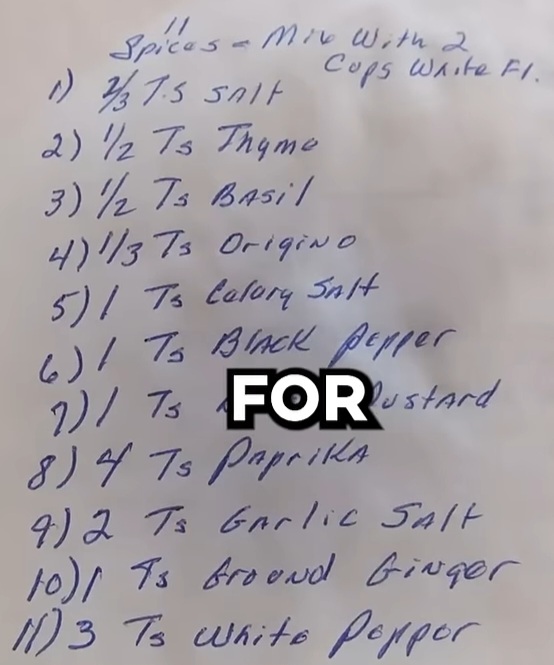 11
Spices = Mix With 2
Cups White Fl.
1) 2/3 T.S SAlt
2) 1/2 Ts Thyme
3) 1/2 Ts BASil
4) 1/3 Ts OrigiNo
5) 1 Ts Celary SAlt
6) 1 Ts BlACK Pepper
7) 1 Ts FOR MustArd
8) 4 Ts PAPriKA
9) 2 Ts GArlic SAlt
10) 1 Ts Ground GiNger
11) 3 Ts White Pepper